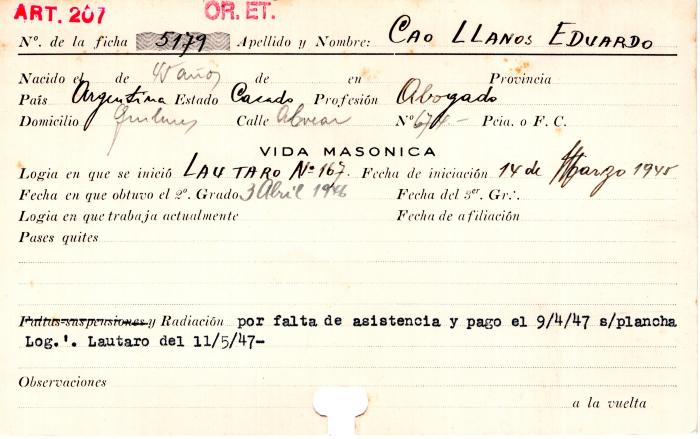 ART. 207 OR. ET.
Nº. de la ficha 5179 Apellido y Nombre: CAO LLANOS EDUARDO
Nacido el de años de en Provincia
País Argentina Estado Casado Profesión Abogado
Domicilio Quilmes Calle Alvear Nº 674 - Pcia. o F. C.
VIDA MASONICA
Logia en que se inició LAUTARO Nº 167. Fecha de iniciación 14 de Marzo 1945
Fecha en que obtuvo el 2º. Grado 3 Abril 1946 Fecha del 3er. Gr∴
Logia en que trabaja actualmente Fecha de afiliación
Pases quites
Faltas suspensiones y Radiación por falta de asistencia y pago el 9/4/47 s/plancha
Log.'. Lautaro del 11/5/47-
Observaciones
a la vuelta